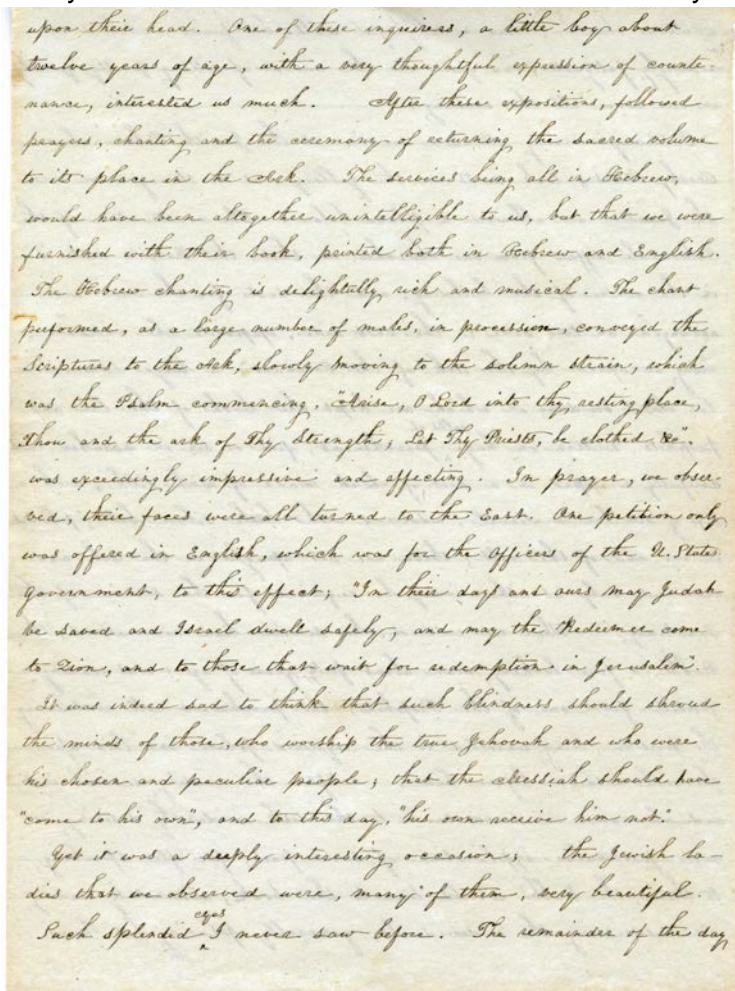 upon their head. One of these inquirers, a little boy about
twelve years of age, with a very thoughtful expression of counte-
nance, interested us much. After these expositions, followed
prayers, chanting and the ceremony of returning the sacred volume
to its place in the Ark. The services being all in Hebrew,
would have been altogether unintelligible to us, but that we were
furnished with their book, printed both in Hebrew and English.
The Hebrew chanting is delightfully rich and musical. The chant
performed, as a large number of males, in procession, conveyed the
Scriptures to the Ark, slowly moving to the solemn strain, which
was the Psalm commencing, "Arise, O Lord into thy resting place,
Thou and the ark of Thy Strength; Let Thy Priests, be clothed &c".
was exceedingly impressive and affecting. In prayer, we obser-
ved, their faces were all turned to the East. One petition only
was offered in English, which was for the Officers of the U. States
Government, to this effect; "In their days and ours may Judah
be saved and Israel dwell safely, and may the Redeemer come
to Zion, and to those that wait for redemption in Jerusalem".
It was indeed sad to think that such blindness should shroud
the minds of those, who worship the true Jehovah and who were
his chosen and peculiar people; that the Messiah should have
"come to his own", and to this day, "his own receive him not."
Yet it was a deeply interesting occasion; the Jewish la-
dies that we observed were, many of them, very beautiful.
Such splendid eyes I never saw before. The remainder of the day